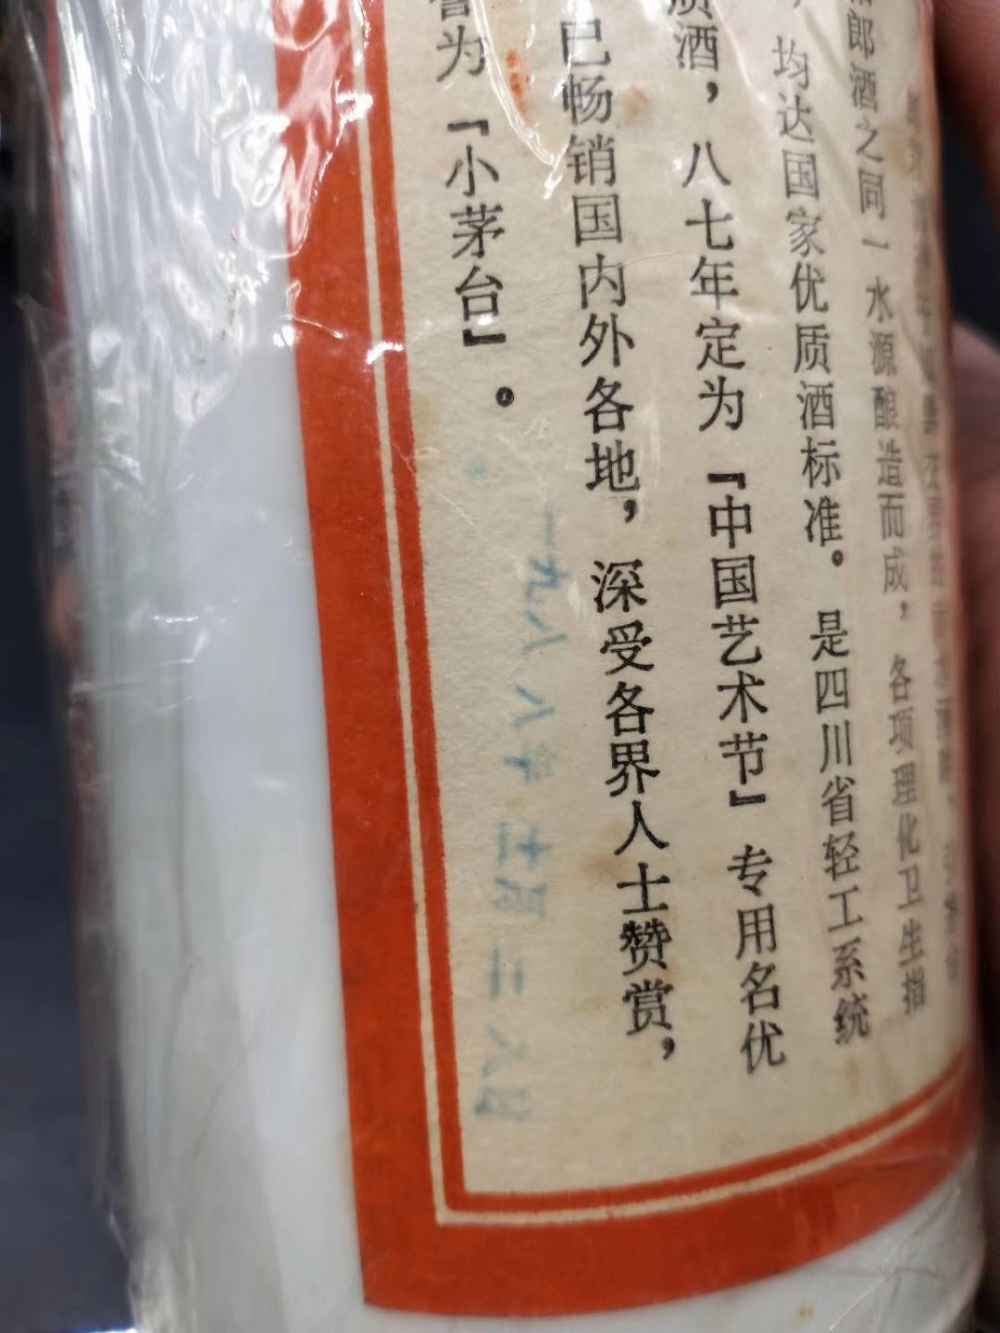 郎酒之同一水源酿造而成，各项理化卫生指
，均达国家优质酒标准。是四川省轻工系统
质酒，八七年定为『中国艺术节』专用名优
已畅销国内外各地，深受各界人士赞赏，
誉为『小茅台』。
一九八八年